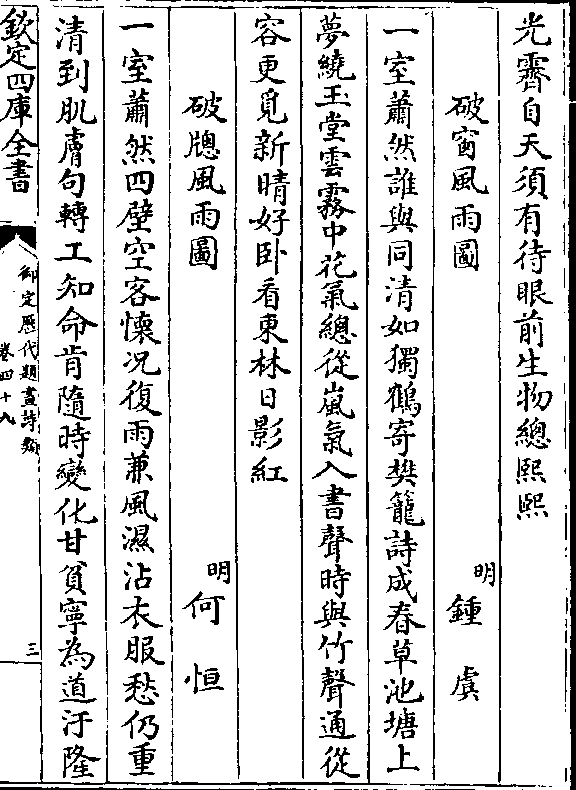 光霽自天須有待眼前生物總熙熙
破窗風雨圖
明
鍾虡
一室蕭然誰與同清如獨鶴寄樊籠詩成春草池塘上
夢繞玉堂雲霧中花氣總從嵐氣入書聲時與竹聲通從
容更覓新晴好卧看東林日影紅
破牕風雨圖
明
何恒
一室蕭然四壁空客懷况復雨兼風濕沾衣服愁仍重
清到肌膚句轉工知命肯隨時變化甘貧寧為道汙隆
欽定四庫全書
御定歷代題畫詩類
卷四十九
三